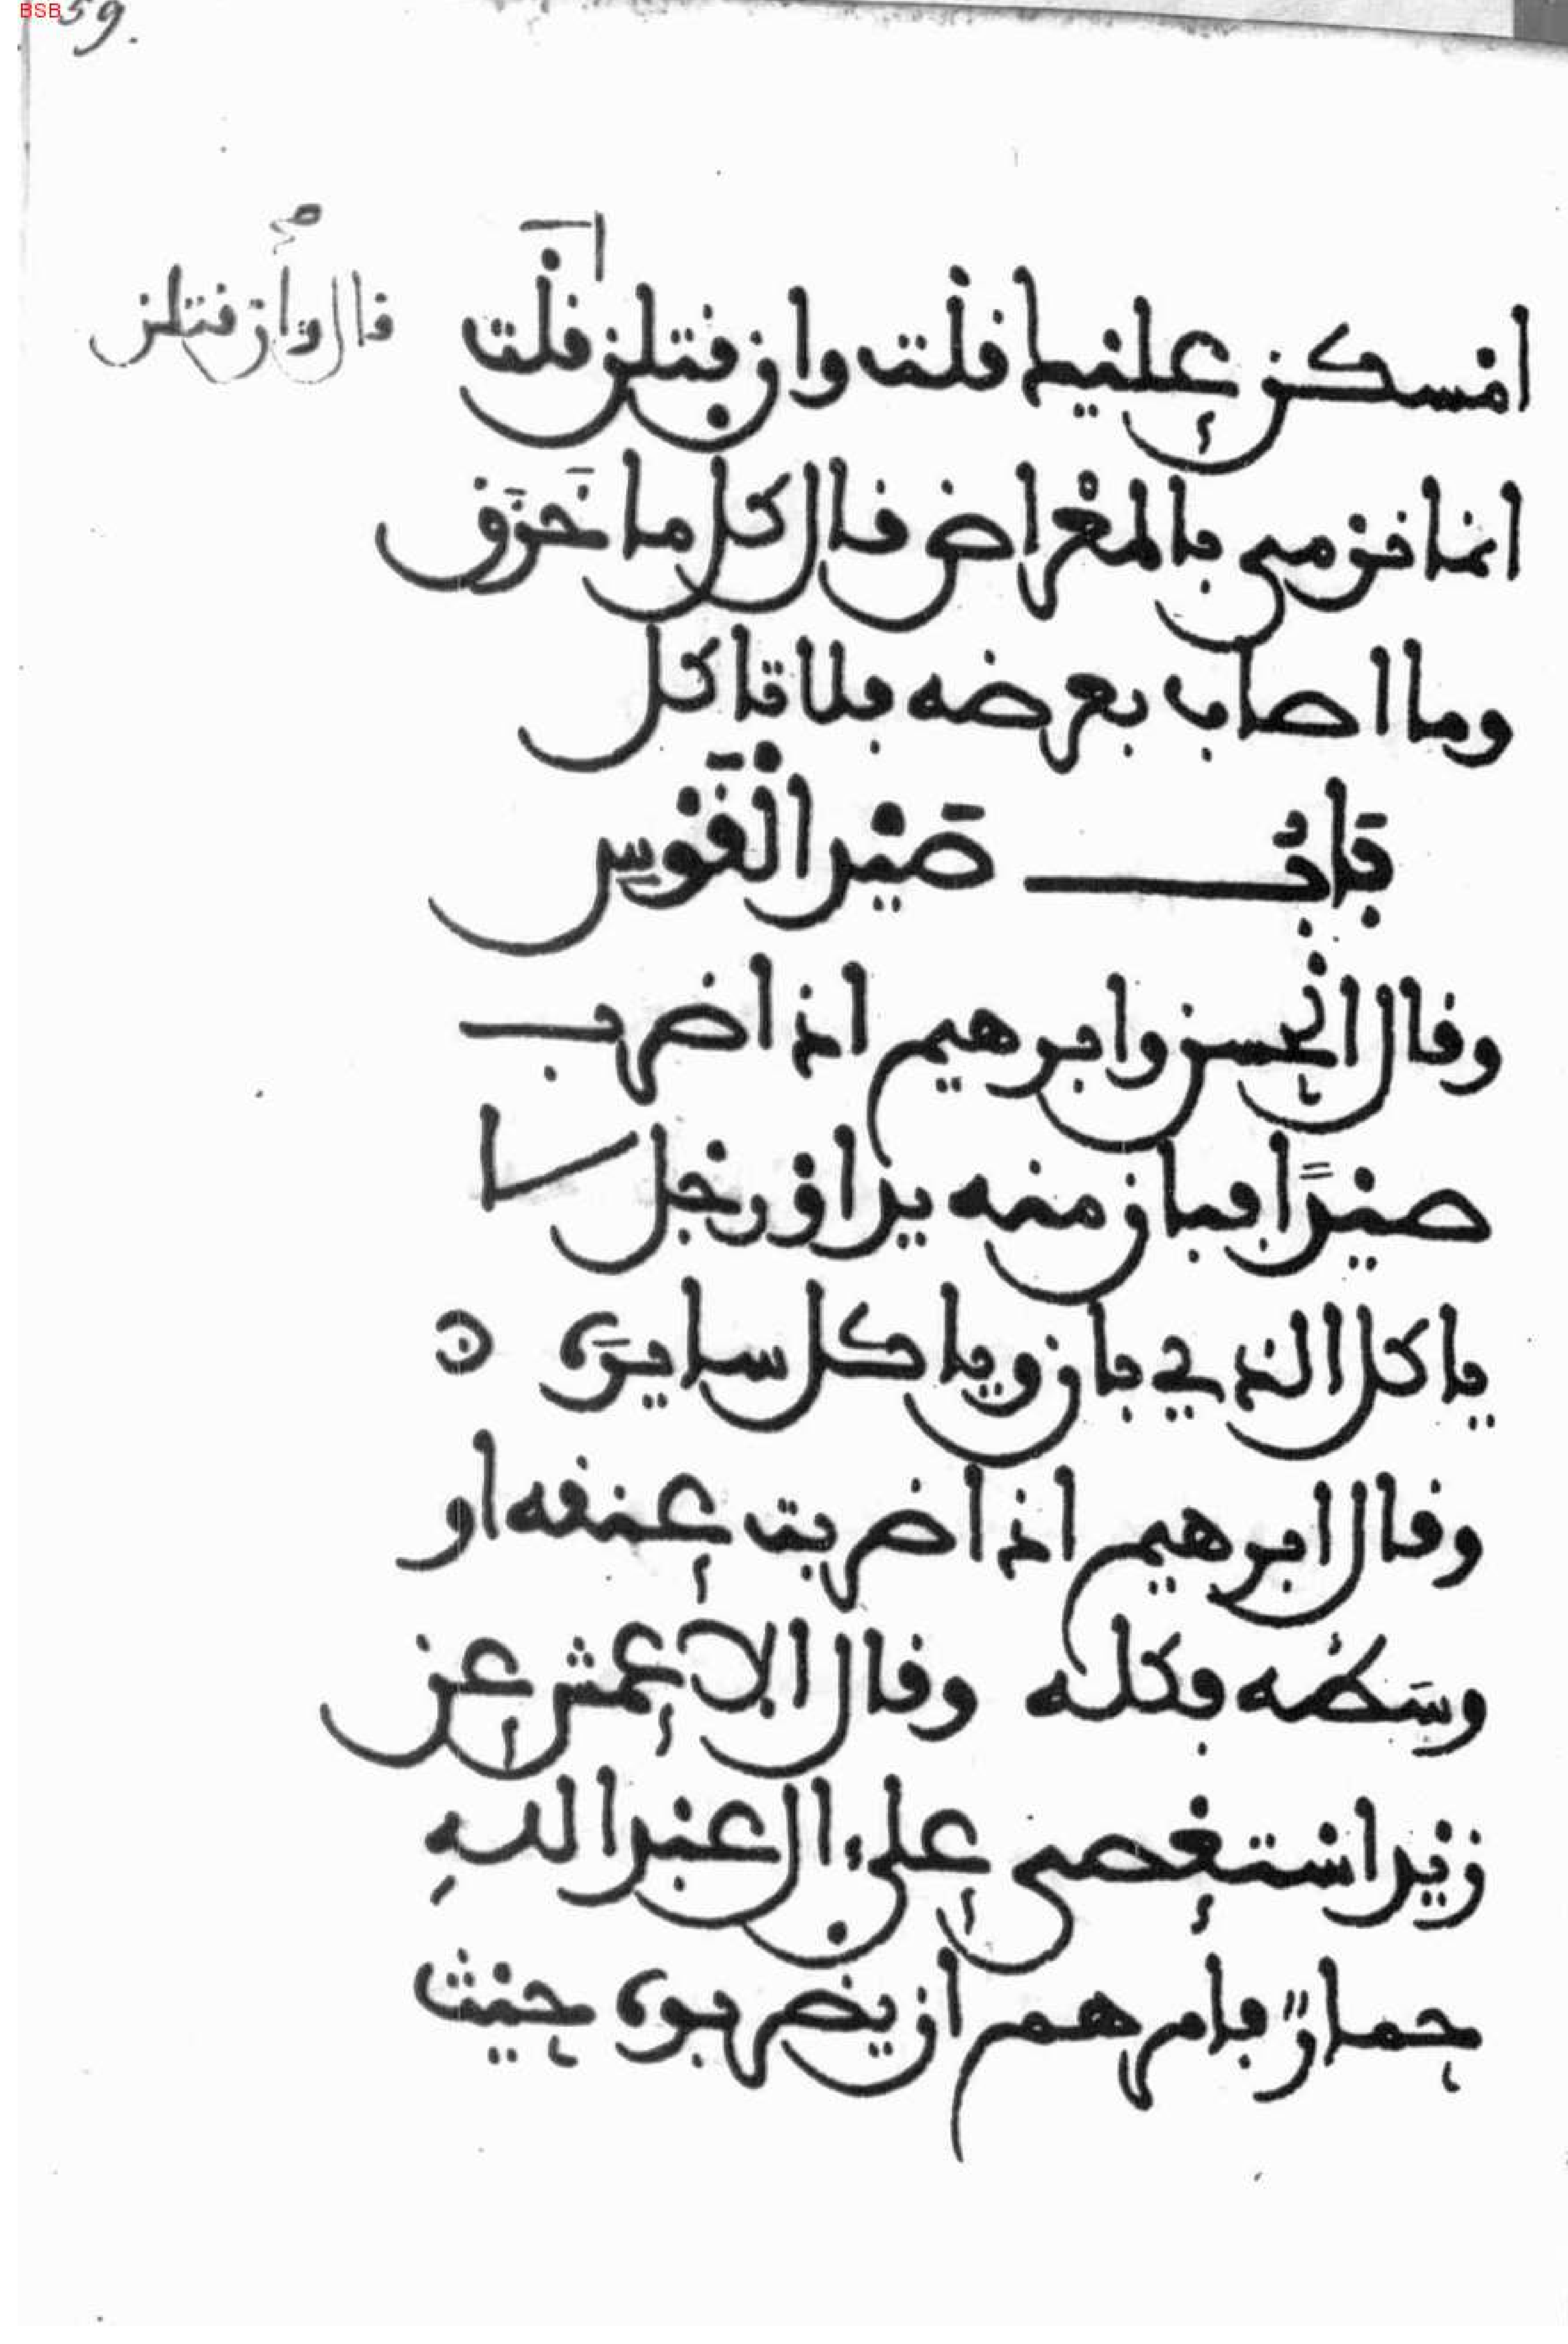 59.
امسكن عليك قلت وان قتلن قلت
قال وان قتلن
انما نرمي بالمعراض قال كل ما خَزَق
وما اصاب بعرضه فلا تاكل
بَابُ صَيْد الْقَوْسِ
وقال الحسن وابرهيم اذا ضرب
صيدًا فبان منه يد او رجل لا
ياكل الذي بان وياكل سايرَه
وقال ابرهيم اذا ضربت عنقه او
وسَطه فكله وقال الاعمش عن
زيد استعصى على ءال عبد اللهِ
حمارٌ فامرهم ان يضربوه حيث